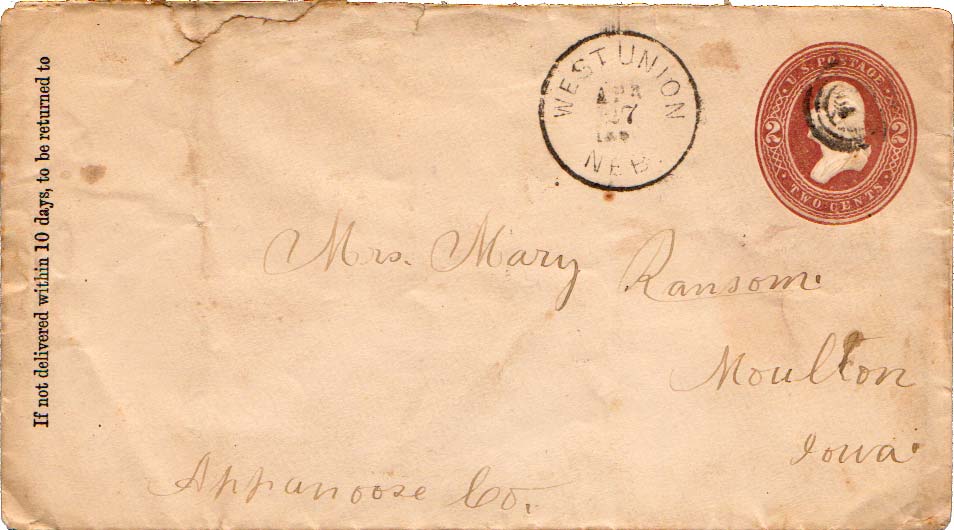 If not delivered within 10 days, to be returned to
WEST UNION
APR
NEB.
U.S. POSTAGE
2 2
TWO CENTS
Mrs. Mary Ransom.
Moulton
Iowa.
Appanoose Co.